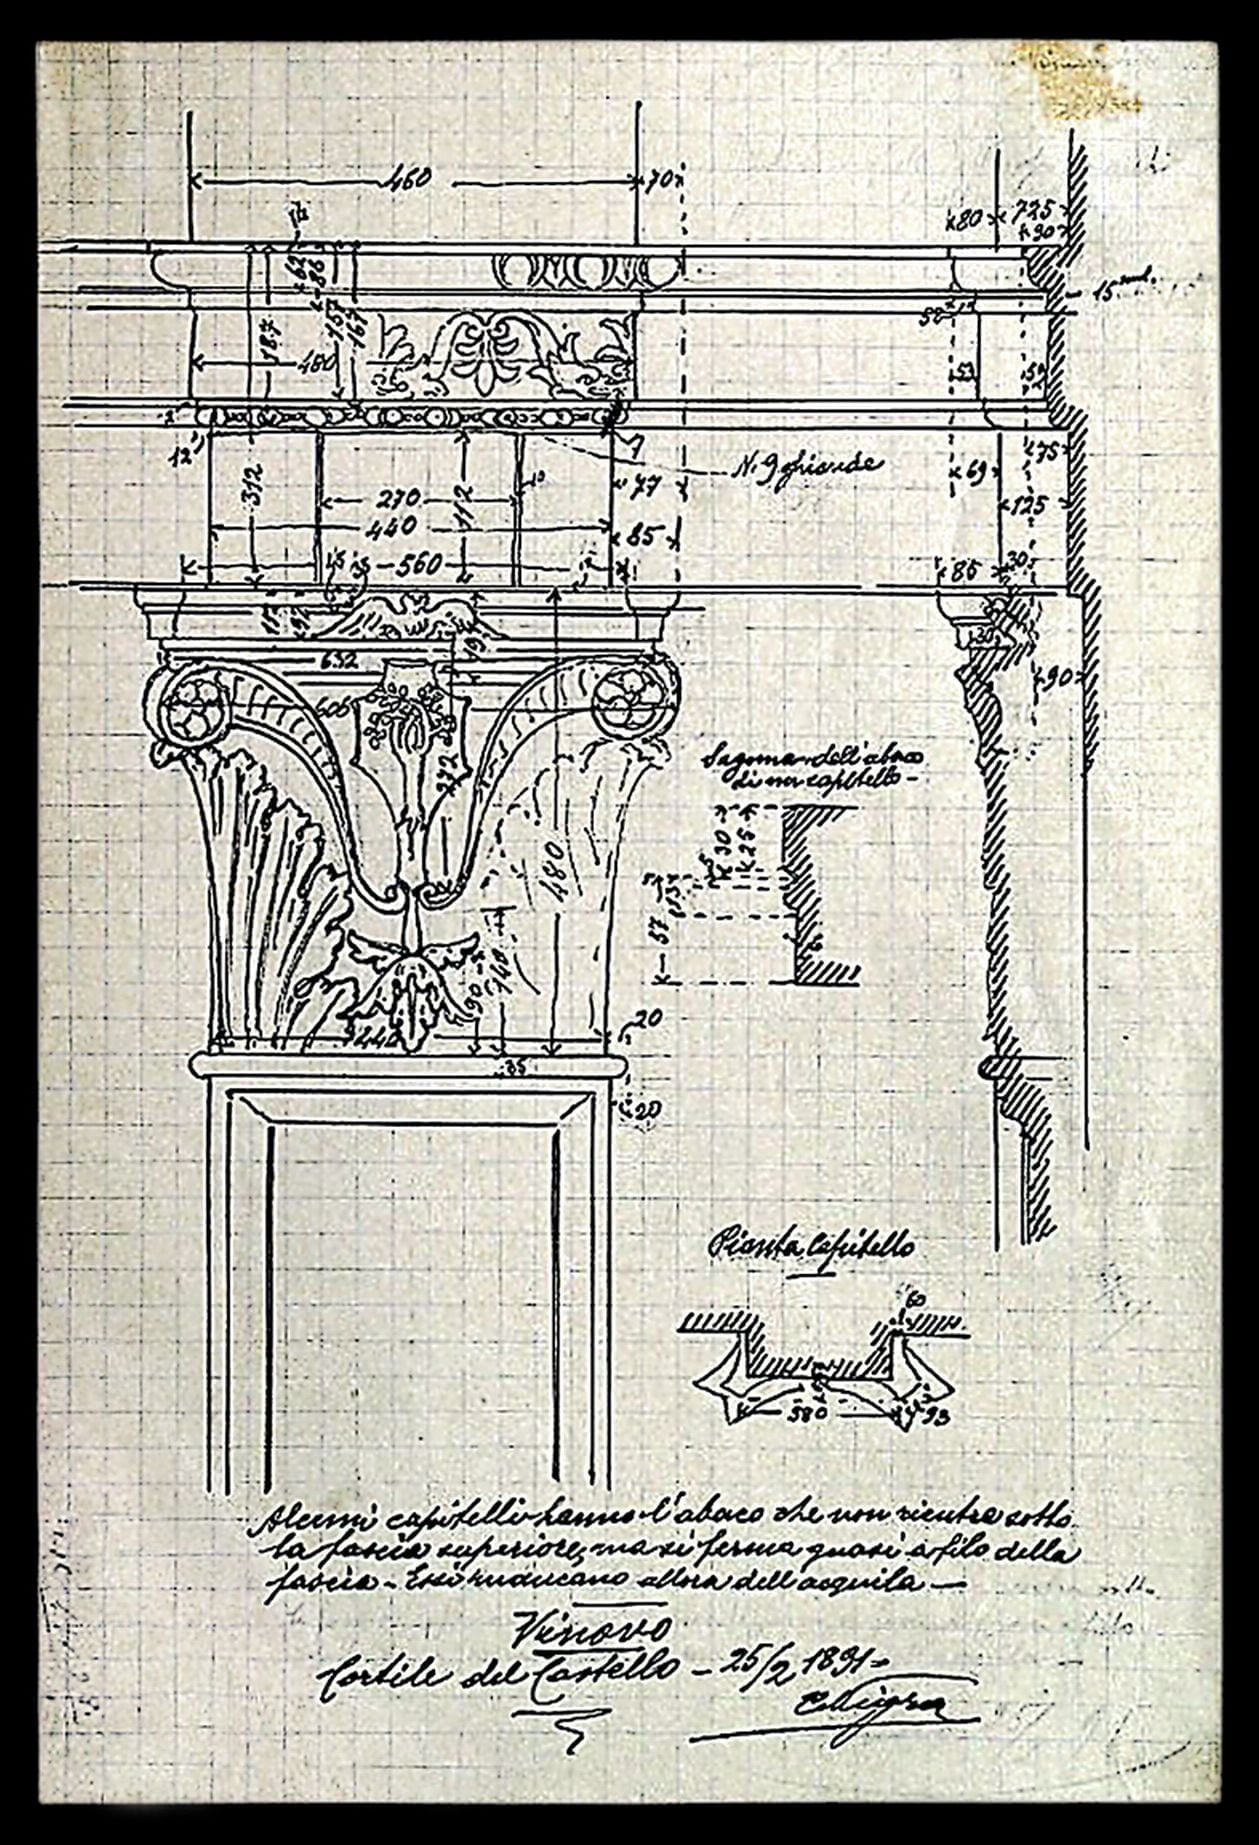 460
70
80
725
30
62
86
15
187
157
167
480
58
53
52
12
7
N. 9 ghiande
75
312
270
112
10
77
69
440
125
85
560
85
30
30
632
90
605
272
Sagoma dell'abaco
di un capitello -
30
25
5
480
57
90
140
440
20
35
20
Pianta Capitello
60
580
93
Alcuni capitelli hanno l'abaco che non rientra sotto
la fascia superiore, ma si ferma quasi a filo della
fascia - Essi mancano allora dell'acquila -
Vinovo
Cortile del Castello - 25/2 1891 -
CNigra